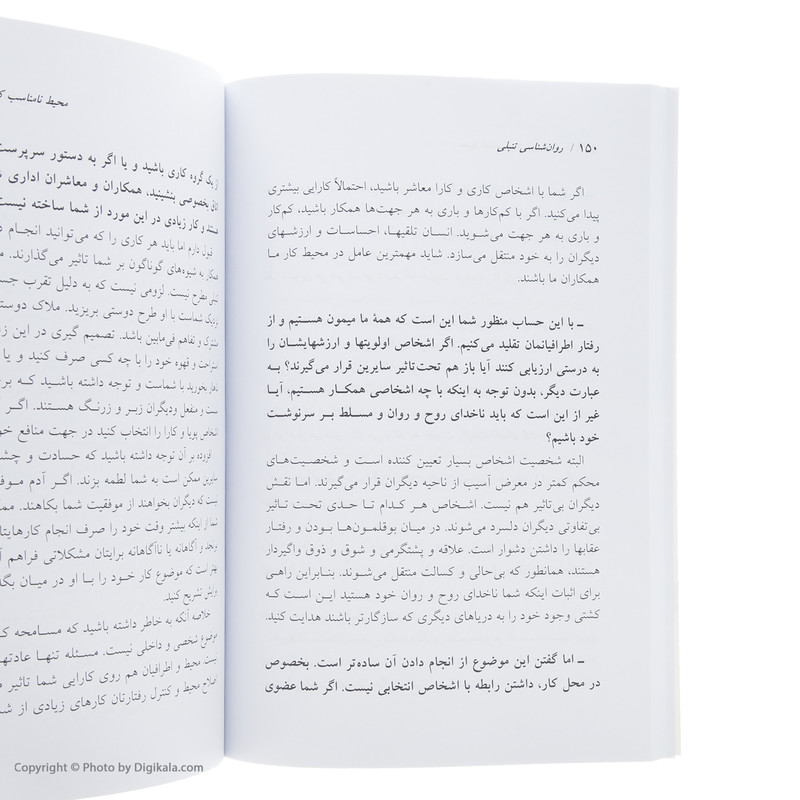 ۱۵۰ / روان‌شناسی تنبلی
اگر شما با اشخاص کاری و کارا معاشر باشید، احتمالاً کارایی بیشتری
پیدا می‌کنید. اگر با کم‌کارها و باری به هر جهت‌ها همکار باشید، کم‌کار
و باری به هر جهت می‌شوید. انسان تلقیها، احساسات و ارزشهای
دیگران را به خود منتقل می‌سازد. شاید مهمترین عامل در محیط کار ما
همکاران ما باشند.
ـ با این حساب منظور شما این است که همهٔ ما میمون هستیم و از
رفتار اطرافیانمان تقلید می‌کنیم. اگر اشخاص اولویتها و ارزشهایشان را
به درستی ارزیابی کنند آیا باز هم تحت‌تاثیر سایرین قرار می‌گیرند؟ به
عبارت دیگر، بدون توجه به اینکه با چه اشخاصی همکار هستیم، آیا
غیر از این است که باید ناخدای روح و روان و مسلط بر سرنوشت
خود باشیم؟
البته شخصیت اشخاص بسیار تعیین کننده است و شخصیت‌های
محکم کمتر در معرض آسیب از ناحیه دیگران قرار می‌گیرند. اما نقش
دیگران بی‌تاثیر هم نیست. اشخاص هر کدام تا حدی تحت تاثیر
بی‌تفاوتی دیگران دلسرد می‌شوند. در میان بوقلمون‌ها بودن و رفتار
عقابها را داشتن دشوار است. علاقه و پشتگرمی و شوق و ذوق واگیردار
هستند، همانطور که بی‌حالی و کسالت منتقل می‌شوند. بنابراین راهی
برای اثبات اینکه شما ناخدای روح و روان خود هستید این است که
کشتی وجود خود را به دریاهای دیگری که سازگارتر باشند هدایت کنید.
ـ اما گفتن این موضوع از انجام دادن آن ساده‌تر است. بخصوص
در محل کار، داشتن رابطه با اشخاص انتخابی نیست. اگر شما عضوی
محیط نامناسب
از یک گروه کاری باشید و یا اگر به دستور سرپرست
اتاق بخصوصی بنشینید، همکاران و معاشران اداری
هستند و کار زیادی در این مورد از شما ساخته نیست
قبول دارم اما باید هر کاری را که می‌توانید انجام
همکار به شیوه‌های گوناگون بر شما تاثیر می‌گذارند.
مطرح نیست. لزومی نیست که به دلیل تقرب
شماست با او طرح دوستی بریزید. ملاک
و تفاهم فی‌مابین باشد. تصمیم گیری در این
استراحت و قهوه خود را با چه کسی صرف کنید و یا
ناهار بخورید با شماست و توجه داشته باشید که
است و منفعل ودیگران زبر و زرنگ هستند. اگر
اشخاص پویا و کارا را انتخاب کنید در جهت منافع
افزوده بر آن توجه داشته باشید که حسادت و
سایرین ممکن است به شما لطمه بزند. اگر آدم
نیست که دیگران بخواهند از موفقیت شما بکاهند.
شما از اینکه بیشتر وقت خود را صرف انجام
برنجد و آگاهانه یا ناآگاهانه برایتان مشکلاتی فراهم
بهتر است که موضوع کار خود را با او در میان
برایش تشریح کنید.
خلاصه آنکه به خاطر داشته باشید که مسامحه
موضوع شخصی و داخلی نیست. مسئله تنها
نیست. محیط و اطرافیان هم روی کارایی شما تاثیر
اصلاح محیط و کنترل رفتارتان کارهای زیادی از
Copyright © Photo by Digikala.com